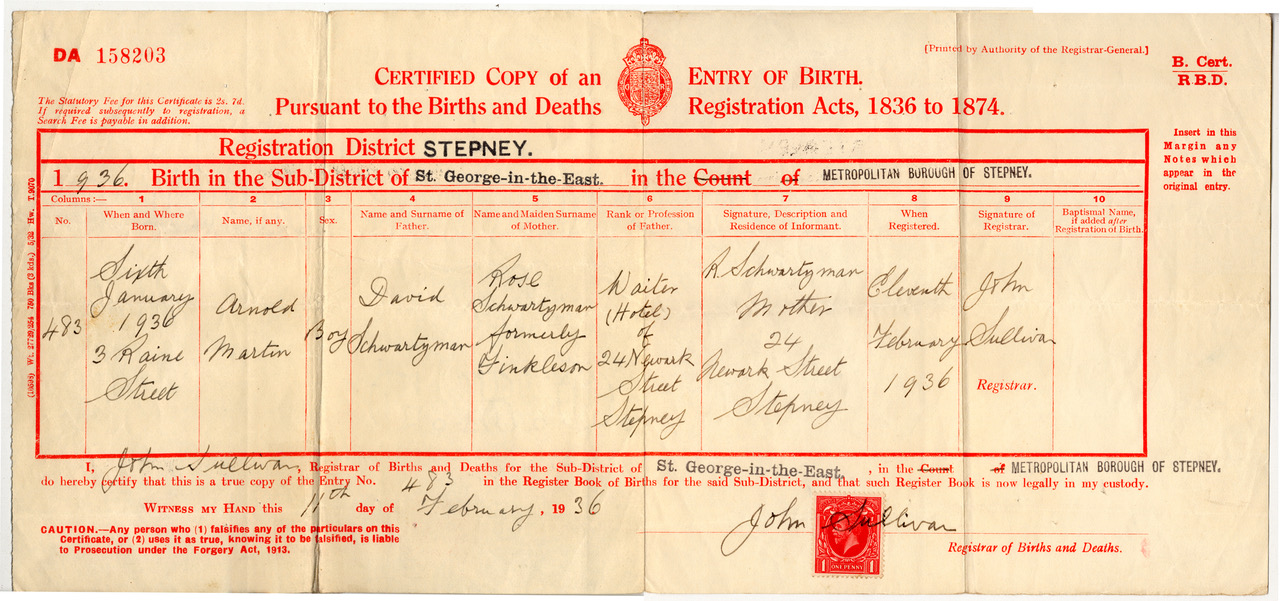 DA 158203
[Printed by Authority of the Registrar-General.]
B. Cert.
R.B.D.
CERTIFIED COPY of an ENTRY OF BIRTH.
Pursuant to the Births and Deaths Registration Acts, 1836 to 1874.
The Statutory Fee for this Certificate is 2s. 7d.
If required subsequently to registration, a
Search Fee is payable in addition.
Insert in this
Margin any
Notes which
appear in the
original entry.
Registration District STEPNEY.
1936. Birth in the Sub-District of St. George-in-the-East. in the Count of METROPOLITAN BOROUGH OF STEPNEY.
Columns:— 1 2 3 4 5 6 7 8 9 10
No.
When and Where
Born.
Name, if any.
Sex.
Name and Surname of
Father.
Name and Maiden Surname
of Mother.
Rank or Profession
of Father.
Signature, Description and
Residence of Informant.
When
Registered.
Signature of
Registrar.
Baptismal Name,
if added after
Registration of Birth.
483
Sixth
January
1936
3 Raine
Street
Arnold
Martin
Boy
David
Schwartzman
Rose
Schwartzman
formerly
Finkleson
Waiter
(Hotel)
of
24 Newark
Street
Stepney
R. Schwartzman
Mother
24
Newark Street
Stepney
Eleventh
February
1936
John
Sullivan
Registrar.
I, John Sullivan, Registrar of Births and Deaths for the Sub-District of St. George-in-the-East. , in the Count of METROPOLITAN BOROUGH OF STEPNEY.
do hereby certify that this is a true copy of the Entry No. 483 in the Register Book of Births for the said Sub-District, and that such Register Book is now legally in my custody.
WITNESS MY HAND this 11th day of February, 1936
CAUTION.—Any person who (1) falsifies any of the particulars on this
Certificate, or (2) uses it as true, knowing it to be falsified, is liable
to Prosecution under the Forgery Act, 1913.
John Sullivan
Registrar of Births and Deaths.
1 ONE PENNY 1